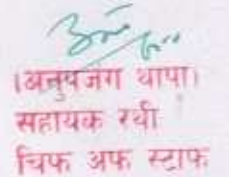 ।अनुपजंग थापा।
सहायक रथी
चिफ अफ स्टाफ